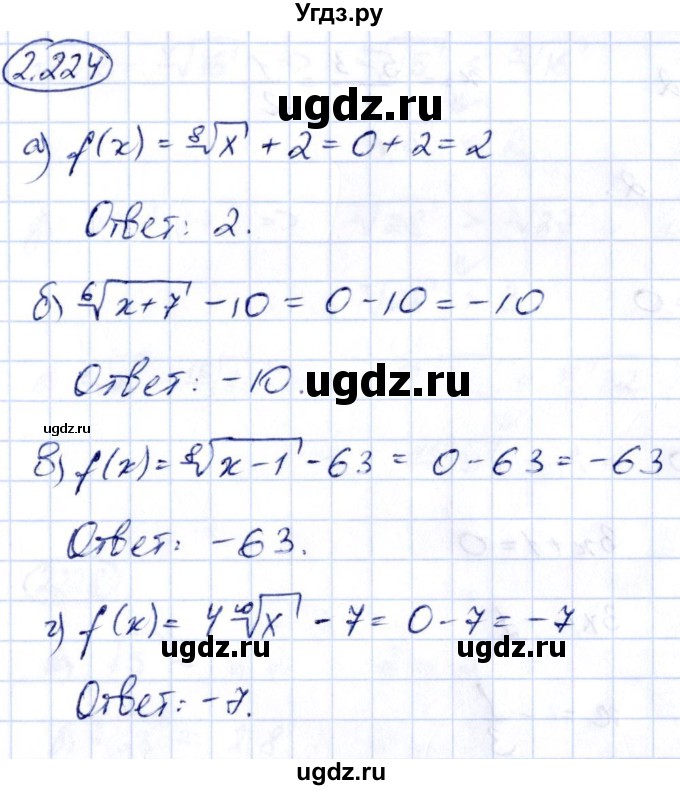 Угдз.ру
2.224
ugdz.ru
а) f(x) = ⁸√x + 2 = 0 + 2 = 2
Ответ: 2.
б) ⁶√x+7 - 10 = 0 - 10 = -10
Ответ: -10.
ugdz.ru
ugdz.ru
в) f(x) = ⁸√x-1 - 63 = 0 - 63 = -63
Ответ: -63.
г) f(x) = 4 ¹⁰√x - 7 = 0 - 7 = -7
ugdz.ru ugdz.ru
Ответ: -7.
ugdz.ru